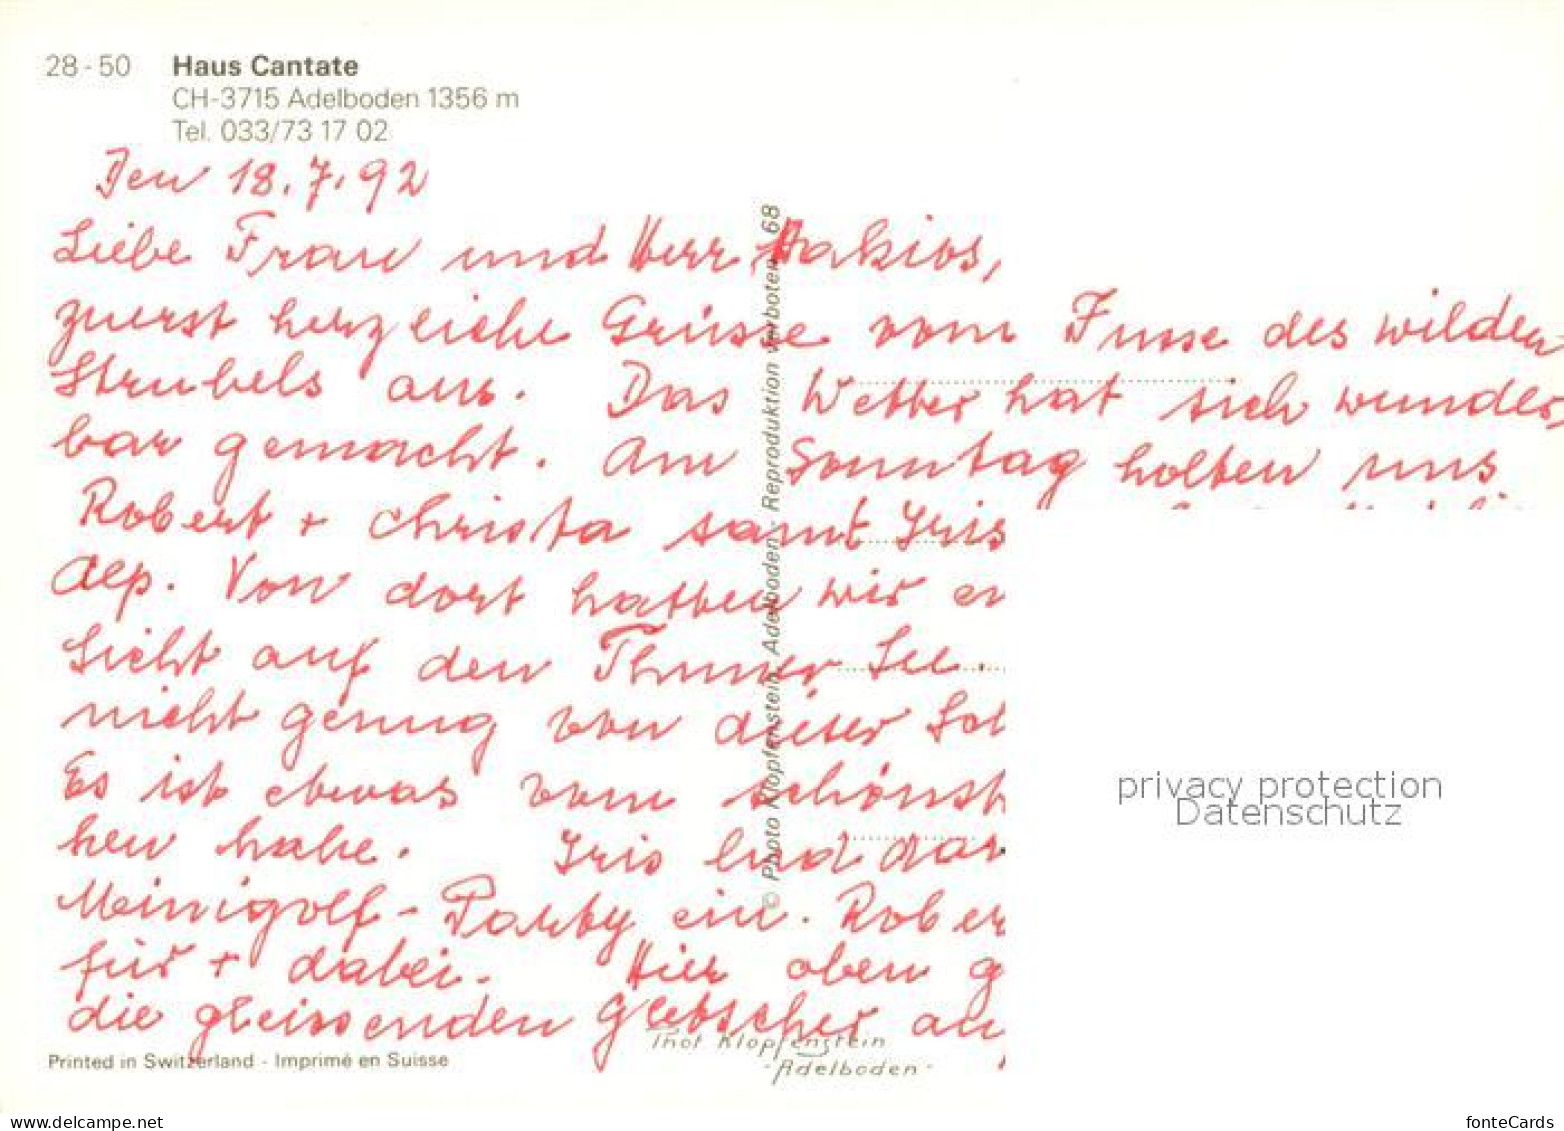 28-50 Haus Cantate
CH-3715 Adelboden 1356 m
Tel. 033/73 17 02
Den 18.7.92
Liebe Frau und Herr
zuerst herzliche Grüsse vom Fusse des wilden
Strubels aus. Das Wetter hat sich wunder
bar gemacht. Am Sonntag holten uns
Robert + Christa samt Iris
Alp. Von dort hatten wir
Sicht auf den Thuner See.
nicht genug von dieser
Es ist etwas vom
hen habe. Iris lud
Meinigolf-Party ein.
für + dabei. Hier oben
die gleissenden Gletscher
© Photo Klopfenstein, Adelboden - Reproduktion verboten 68
Thot Klopfenstein
-Adelboden-
Printed in Switzerland - Imprimé en Suisse
privacy protection
Datenschutz
https://www.delcampe.net
fonteCards